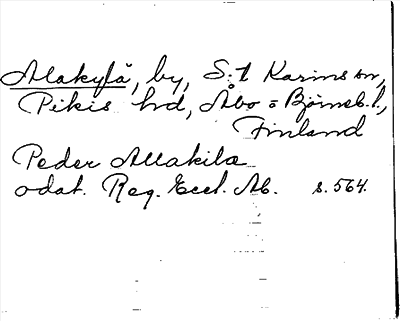 Alakylä, by, S:t Karins sn,
Pikis hd, Åbo o Björneb. l.,
Finland
Peder Allakila
odat. Reg. Eccl. Ab. s. 564.